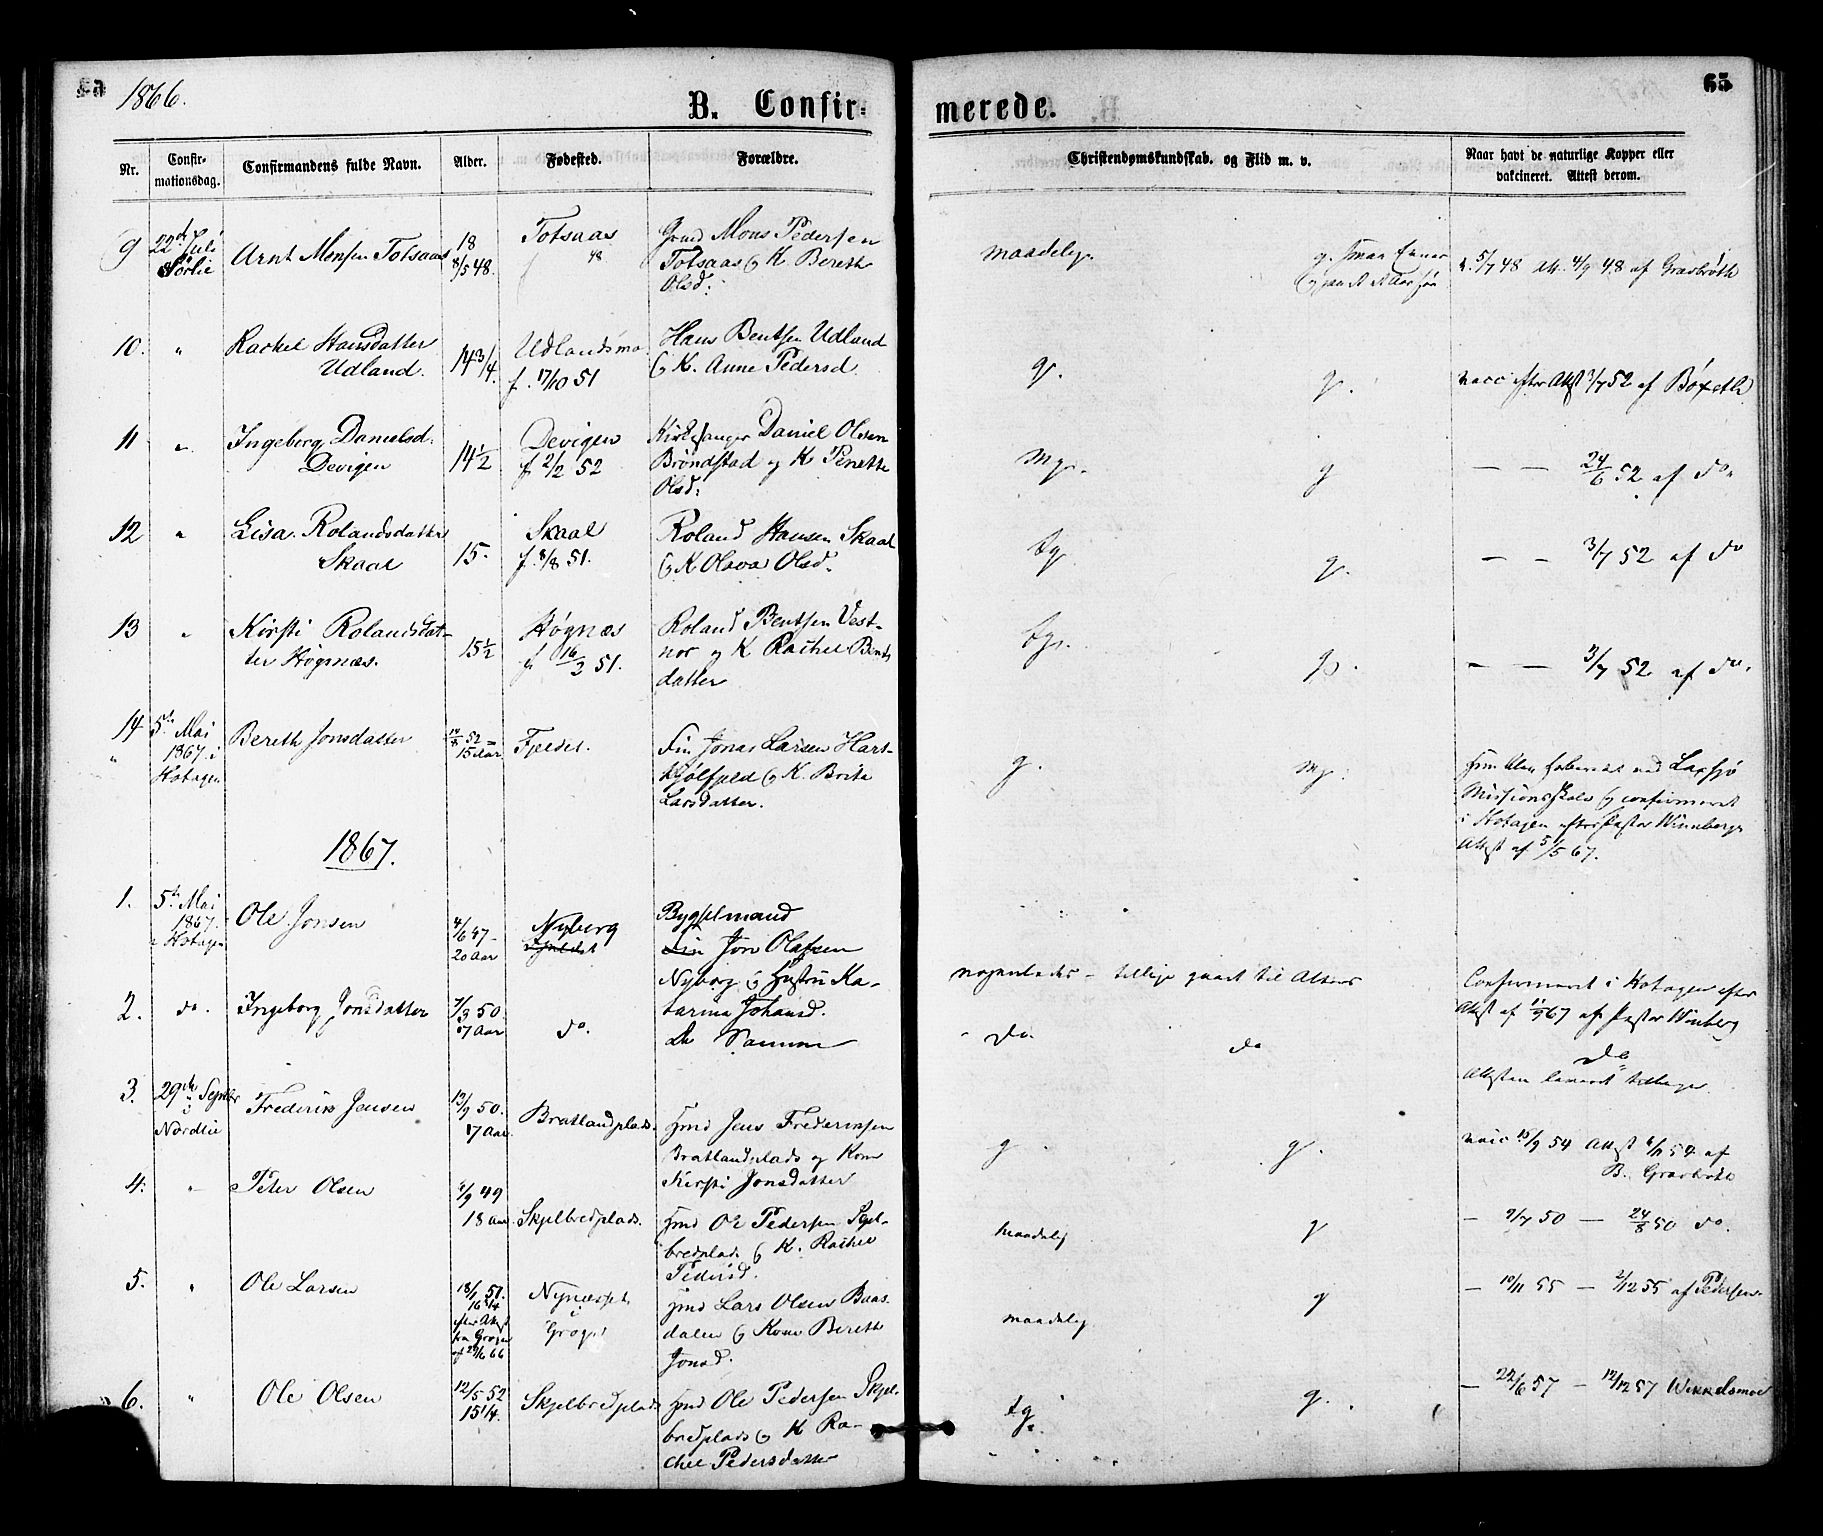 1866.
B. Confir-
merede.
65
Nr.
Confir-
mationsdag.
Confirmandens fulde Navn.
Alder.
Fødested.
Forældre.
Christendomskundskab. og Flid m. v.
Naar havt de naturlige Kopper eller
vakcineret. Attest derom.
9
22de Juli
Sørlie
Arnt Monsen Totsaas
18
8/5 48.
Totsaas
48
Gmd Mons Pedersen
Totsaas og K. Bereth
Olsd:
maadelig.
v. 5/7 48 Att. 4/9 48 af Graabrøth
10.
"
Rachel Hansdatter
Udland.
14 3/4.
Udlandsmo.
f. 17/10 51
Hans Bentsen Udland
og K. Anne Pedersd.
g.
g.
vacc efter Attst 3/7 52 af Bøxeth
11
"
Ingeborg Danielsd.
Devigen
14 1/2
Devigen
f. 2/2 52
Kirkesanger Daniel Olsen
Brøndstad og K Penette
Olsd:
Mg.
g
— — 24/6 52 af do.
12
"
Lisa Rolandsdatter
Skaal
15.
Skaal
f. 8/8 51.
Roland Hansen Skaal
og K Olava Olsd.
tg.
g.
— — 3/7 52 af do
13
"
Kirsti Rolandsdat-
ter Høgnæs.
15 1/2
Høgnæs
f. 16/3 51.
Roland Bentsen Vest-
nor og K Rachel Bents
datter
tg.
g.
— — 3/7 52 af do.
14
"
5te Mai
1867 i
Hotagen
Bereth Jonsdatter
52
15 Aar
Fjeldet.
Fin Jonas Larsen Hart-
kjølfjeld og K. Brita
Larsdatter.
g.
Mg.
Laxsjø
Missionsskole og confirmeret
i Hotagen efter Pastor Winnbergs
Attst af 5/5 67.
1867.
1.
5te Mai
1867.
i Hotagen
Ole Jonsen
4/6 47
20 Aar
Nyborg
Fjeldet
Bygselmand
Fin Jon Olafsen
Nyborg og Hustru Ka-
tarina Johansd.
nogenledes - tillige gaaet til Alters
Confirmeret i Hotagen efter
Attst af 67 af Pastor Winberg
2.
do.
Ingeborg Jonsdatter
7/3 50.
17 Aar
do.
De Samme
do.
do
do
Attsten leveret tilbage.
3.
29de Septbr
i
Nordlie
Frederik Jensen
13/9 50.
17 Aar.
Bratlandplads.
Gmd Jens Frederiksen
Bratlandsplads og Kone
Kirsti Jonsdatter
g.
g.
vacc 15/9 54 Attst 54 af
B. Graabrøth
4.
"
Peter Olsen
49
18 Aar
Skjelbredplads.
Gmd Ole Pedersen Skjel-
bredplads og K. Rachel
Pedersd.
maadelig
g
— 9/7 50 — 24/8 50 do.
5.
"
Ole Larsen
18/1 51.
16 3/4
efter Attst
fra Grøgen
af 29/6 66
i
Lars Olsen Baas-
dalen og Kone Bereth
Jonsd.
maadelig
g
— 10/11 55 — 2/12 55 af Pedersen.
6.
"
Ole Olsen
12/5 52
15 1/4.
Skjelbredplads
Gmd Ole Pedersen Skjel-
bredplads og K Ra-
chel Pedersdatter
tg.
g.
— 22/6 57 — 12/12 57